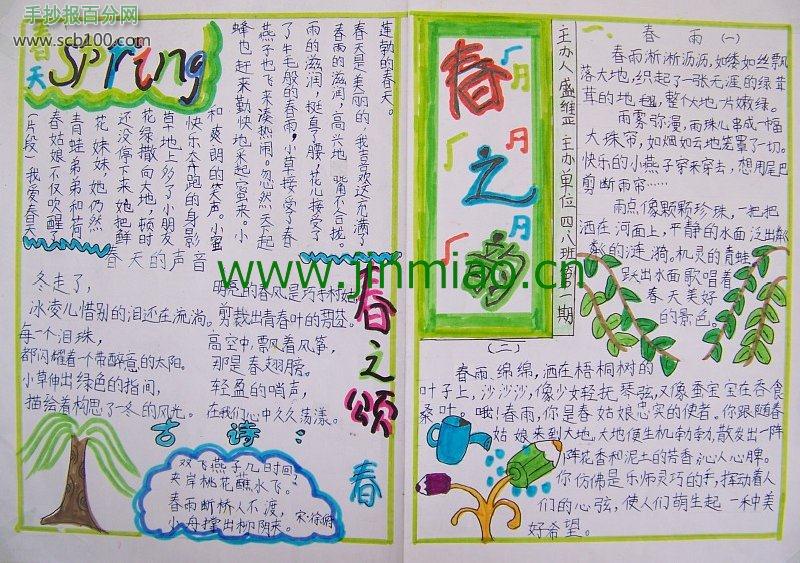 手抄报百分网
www.scb100.com
春天
Spring
蓬勃的春天。
春天是美丽的,我喜欢这充满了
春雨的滋润,高兴地
雨的滋润,挺直了腰,花儿接受了
了牛毛般的春雨,小草接受了春
燕子也飞来凑热闹。忽然天下起
蜂也赶来勤快地采起蜜来。小
和爽朗的笑声。小蜜
快乐奔跑的身影
草地上多了小朋友
花绿撒向大地,顿时
还没停下来她把鲜
花妹妹,她仍然
青蛙弟弟和荷
春姑娘不仅吹醒
(片段)我爱春天
春天的声音
冬走了,
冰凌儿惜别的泪还在流淌。
每一个泪珠,
都闪耀着一个带醉意的太阳。
小草伸出绿色的指间,
描绘着构思了一冬的风光。
的春风是巧手村姑
剪裁出青春叶的
高空中,飘着风筝,
那是春翅膀。
轻盈的哨声,
在我们心中久久荡漾。
春之颂
古诗:
双飞燕子几时回?
夹岸桃花蘸水飞。
春雨断桥人不渡,
小舟撑出柳阴来。
宋·徐俯
春
春之韵
主办人盛维 主办单位四八班第一期
一、春雨(一)
春雨淅淅沥沥,如缕如丝飘
落大地,织起了一张无涯的绿茸
茸的地毯,整个大地一片嫩绿。
雨雾弥漫,雨珠儿串成一幅
大珠帘,如烟如云地笼罩了一切。
快乐的小燕子穿来穿去,想用尾巴
剪断雨帘……
雨点像颗颗珍珠,一把把
洒在河面上,平静的水面泛出粼
粼的涟漪。机灵的青蛙
跃出水面歌唱着
春天美好
的景色。
(二)
春雨,绵绵,洒在梧桐树的
叶子上,沙沙沙,像少女轻抚琴弦,又像蚕宝宝在吞食
桑叶。哦!春雨,你是春姑娘忠实的使者。你跟随春
姑娘来到大地,大地便生机勃勃,散发出一阵
阵花香和泥土的芳香沁人心脾。
你仿佛是乐师灵巧的手,挥动着人
们的心弦,使人们萌生起一种美
好希望。
www.jinmiao.cn